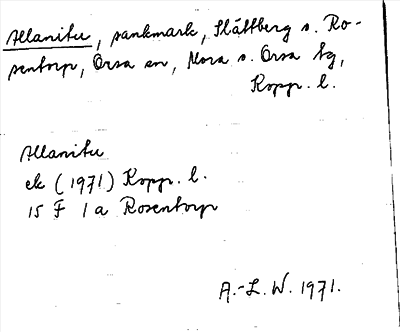 Allanitu, sankmark, Slättberg s. Ro-
sentorp, Orsa sn, Mora o. Orsa tg,
Kopp. l.
Allanitu
ek (1971) Kopp. l.
15 F 1a Rosentorp
A.-L. W. 1971.